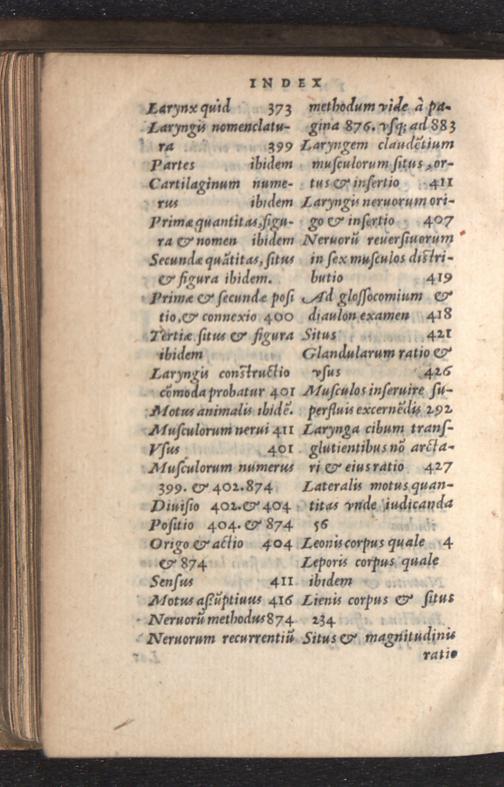 INDEX
Larynx quid 373
Laryngis nomenclatu-
ra 399
Partes ibidem
Cartilaginum nume-
rus ibidem
Primæ quantitas, figu-
ra & nomen ibidem
Secundæ quãtitas, situs
& figura ibidem.
Primæ & secundæ posi
tio, & connexio 400
Tertiæ situs & figura
ibidem
Laryngis constructio
cõmoda probatur 401
Motus animalis ibidẽ.
Musculorum nerui 411
Vsus 401
Musculorum numerus
399. & 402.874
Diuisio 402.& 404
Positio 404. & 874
Origo & actio 404
& 874
Sensus 411
Motus assũptiuus 416
Neruorũ methodus 874
Neruorum recurrentiũ
methodum vide à pa-
gina 876. vsq; ad 883
Laryngem claudẽtium
musculorum situs, or-
tus & insertio 411
Laryngis neruorum ori-
go & insertio 407
Neruorũ reuersiuorum
in sex musculos distri-
butio 419
Ad glossocomium &
diaulon examen 418
Situs 421
Glandularum ratio &
vsus 426
Musculos inseruire su-
perfluis excernẽdis 292
Larynga cibum trans-
glutientibus nõ arcta-
ri & eius ratio 427
Lateralis motus quan-
titas vnde iudicanda
56
Leonis corpus quale 4
Leporis corpus quale
ibidem
Lienis corpus & situs
234
Situs & magnitudinis
ratio